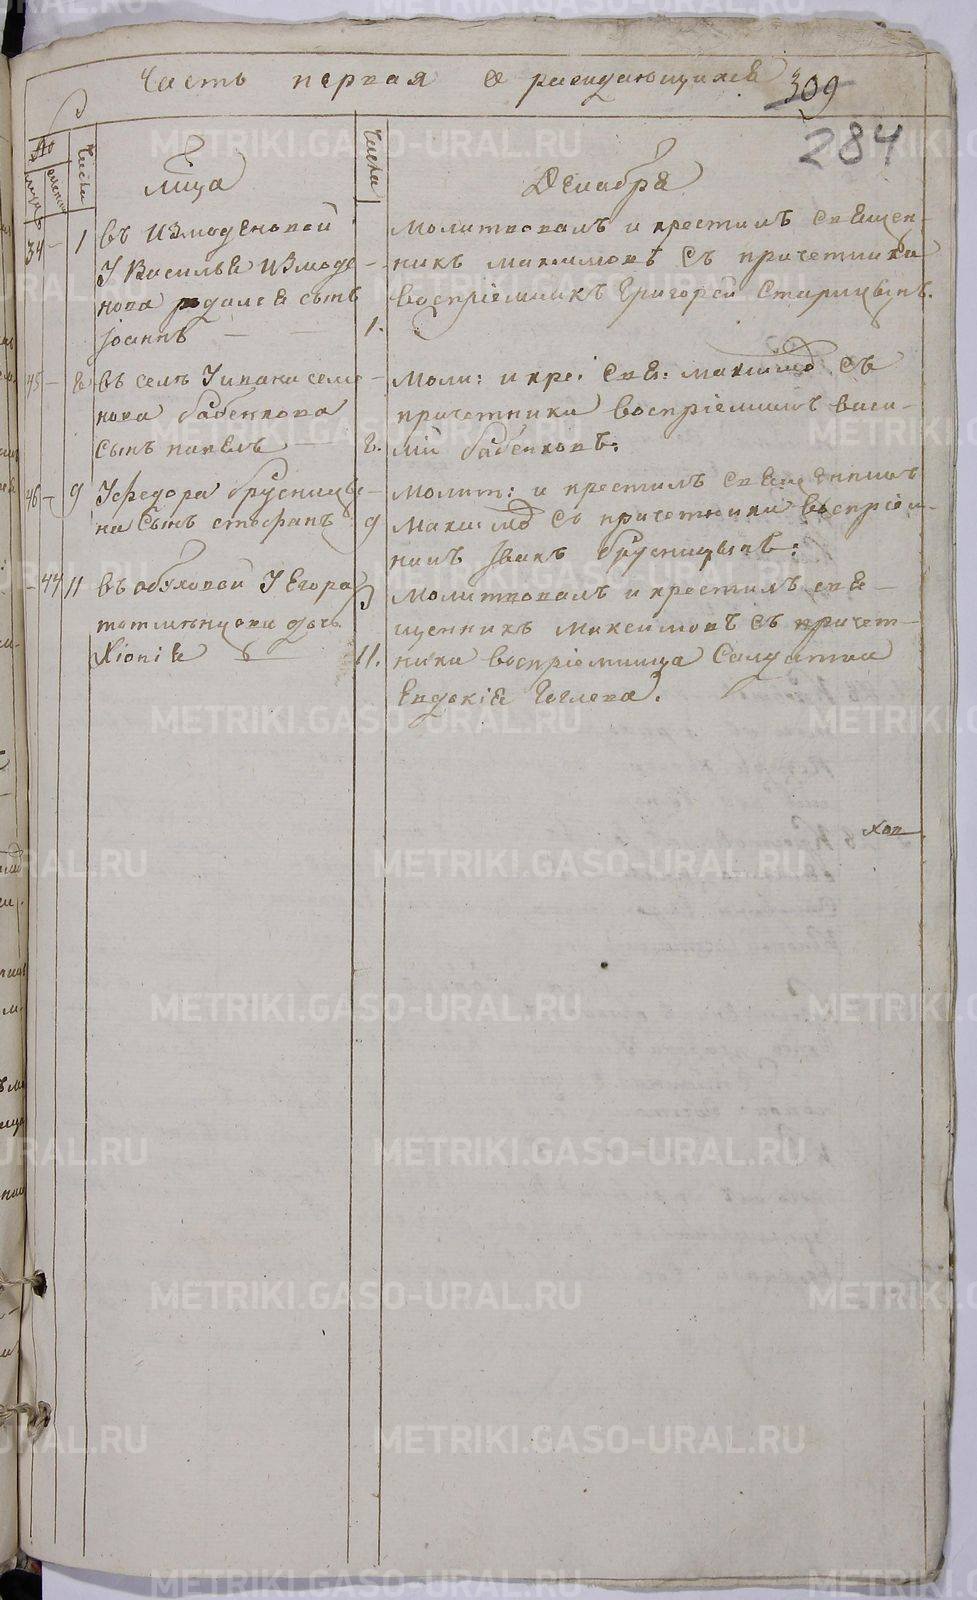 Часть первая о раждающихся
309
284
№
Числа
Числа
мужеск
женск
лица
Декабря
34 — 1 въ Измоденовой
У Василья Измоде
нова родился сынъ
Iоаннъ —
1.
молитвовалъ и крестилъ священ-
никъ максимовъ съ причетники
воспріемникъ Григорей Старицынъ.
45 — 8 въ селѣ У ивана семе
нова бабенкова
сынъ павелъ —
8.
моли: и кре: свя: максимо съ
причетники воспріемникъ васи-
лій бабенковъ:
46 — 9 У федора брусницы
на сынъ стефанъ
9
молит: и крестилъ священникъ
максимо съ причетники воспріем-
никъ Iванъ брусницынъ:
— 44 11 въ обуховой У Егора
дочь
Хіоніѧ
11.
молитвовалъ и крестилъ свя-
щенникъ максимовъ съ причет-
ники воспріемница Салдатка
Евдокіѧ
METRIKI.GASO-URAL.RU